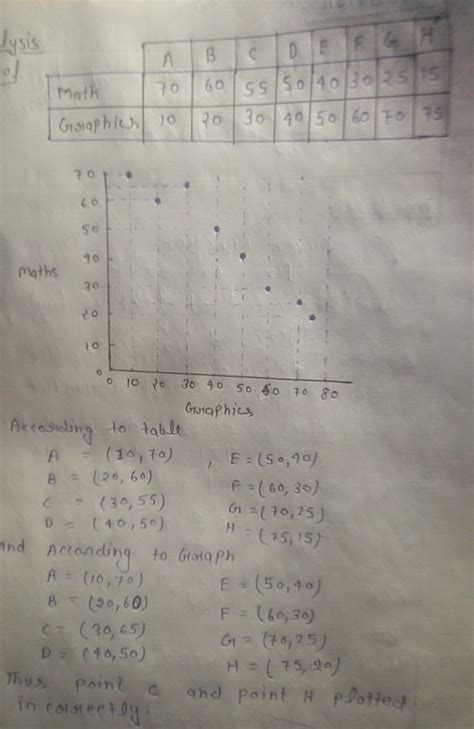 lysis
of
A B C D E F G H
Math 70 60 55 50 40 30 25 15
Graphics 10 20 30 40 50 60 70 75
70
60
50
40
Maths
30
20
10
0
0 10 20 30 40 50 60 70 80
Graphics
According to table
A = (10,70) , E = (50,40)
B = (20,60) F = (60,30)
C = (30,55) G = (70,25)
D = (40,50) H = (75,15)
and According to Graph
A = (10,70) E = (50,40)
B = (20,60) F = (60,30)
C = (30,65) G = (70,25)
D = (40,50) H = (75,20)
Thus point C and point H plotted
incorrectly.